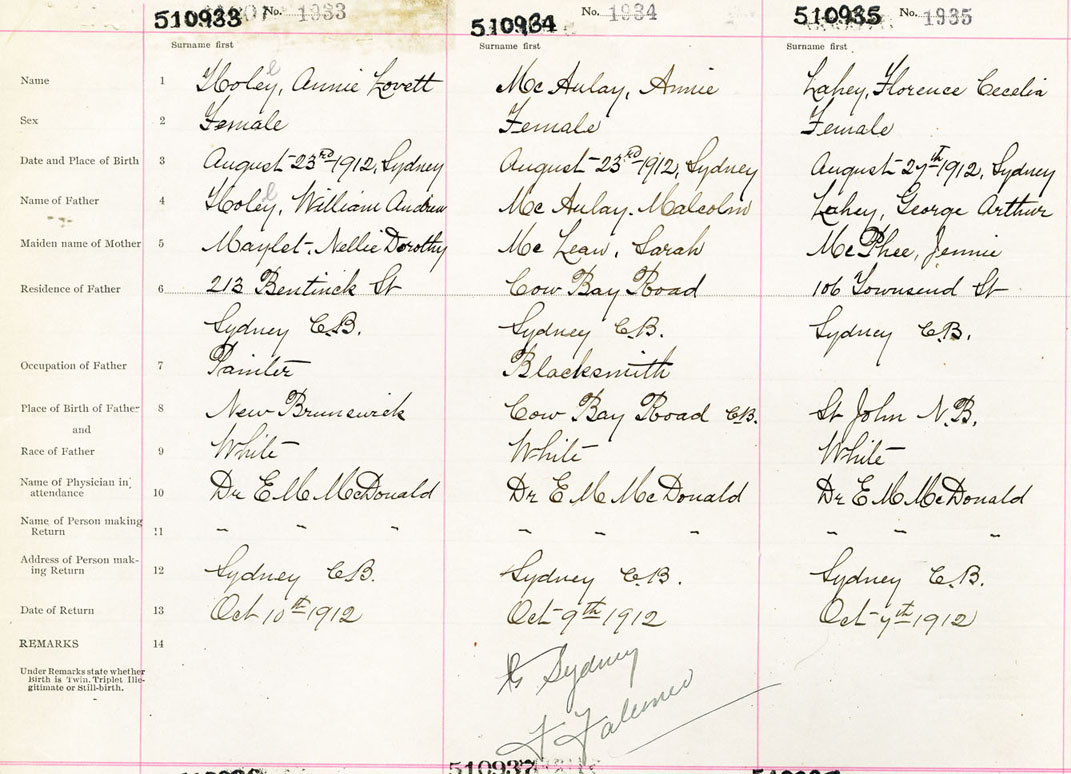 510933 No. 1933 510934 No. 1934 510935 No. 1935
Surname first Surname first Surname first
Name 1 Holey, Annie Lovett McAulay, Annie Lahey, Florence Cecelia
Sex 2 Female Female Female
Date and Place of Birth 3 August 23rd 1912, Sydney August 23rd 1912, Sydney August 27th 1912, Sydney
Name of Father 4 Holey, William Andrew McAulay, Malcolm Lahey, George Arthur
Maiden name of Mother 5 Maylet, Nellie Dorothy McLean, Sarah McPhee, Jennie
Residence of Father 6 213 Bentinck St Cow Bay Road 106 Townsend St
Sydney C.B. Sydney C.B. Sydney C.B.
Occupation of Father 7 Painter Blacksmith
Place of Birth of Father 8 New Brunswick Cow Bay Road C.B. St John N.B.
and
Race of Father 9 White White White
Name of Physician in attendance 10 Dr E M McDonald Dr E M McDonald Dr E M McDonald
Name of Person making Return 11 " " " " " " " " "
Address of Person making Return 12 Sydney C.B. Sydney C.B. Sydney C.B.
Date of Return 13 Oct 10th 1912 Oct 9th 1912 Oct 7th 1912
REMARKS 14
Under Remarks state whether
Birth is Twin, Triplet Ille-
gitimate or Still-birth.
Sydney
510937